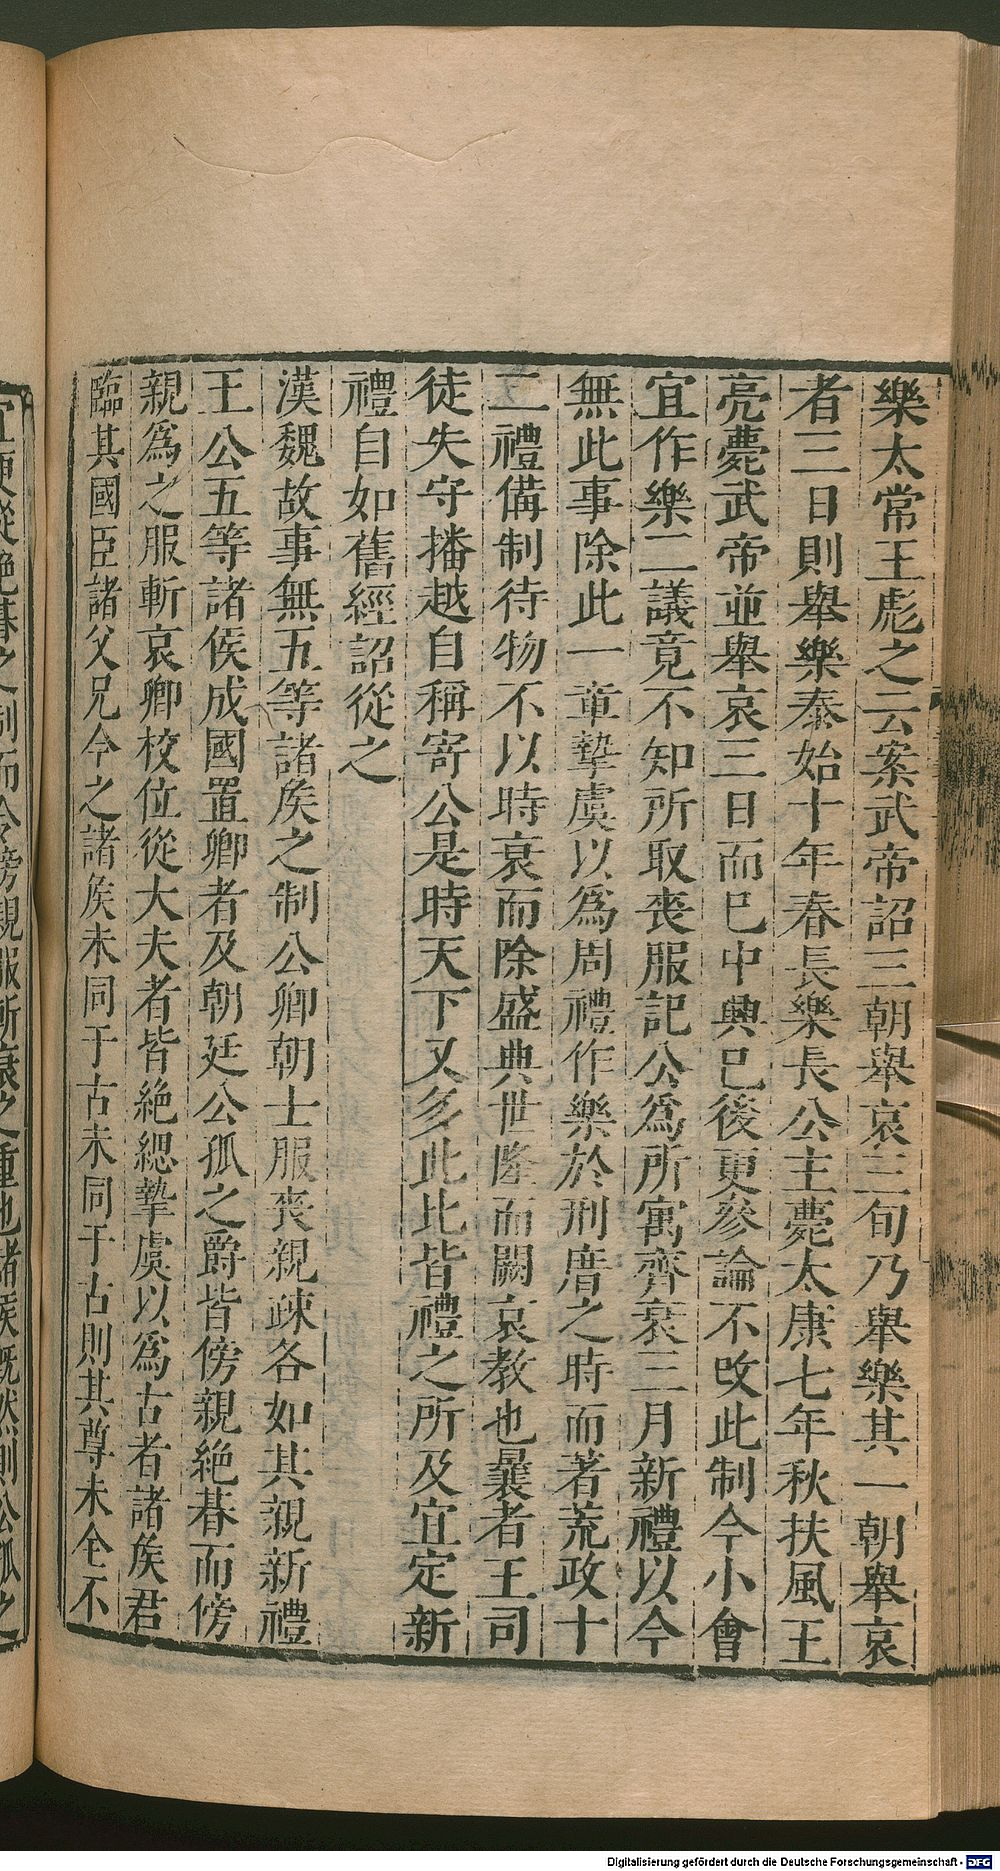 樂太常王彪之云案武帝詔三朝舉哀三旬乃舉樂其一朝舉哀
者三日則舉樂泰始十年春長樂長公主薨太康七年秋扶風王
亮薨武帝並舉哀三日而巳中興巳後更參論不改此制今小會
宜作樂二議竟不知所取喪服記公爲所寓齊衰三月新禮以今
無此事除此一章摯虞以爲周禮作樂於刑厝之時而著荒政十
二禮備制待物不以時衰而除盛典世隆而闕哀教也曩者王司
徒失守播越自稱寄公是時天下又多此比皆禮之所及宜定新
禮自如舊經詔從之
漢魏故事無五等諸矦之制公卿朝士服喪親疎各如其親新禮
王公五等諸侯成國置卿者及朝廷公孤之爵皆傍親絕朞而傍
親爲之服斬衰卿校位從大夫者皆絕緦摯虞以爲古者諸矦君
臨其國臣諸父兄今之諸矦未同于古未同于古則其尊未全不
宜便從絕朞之制而令傍親服斬衰之重也諸侯旣然則公孤之
Digitalisierung gefördert durch die Deutsche Forschungsgemeinschaft - DFG